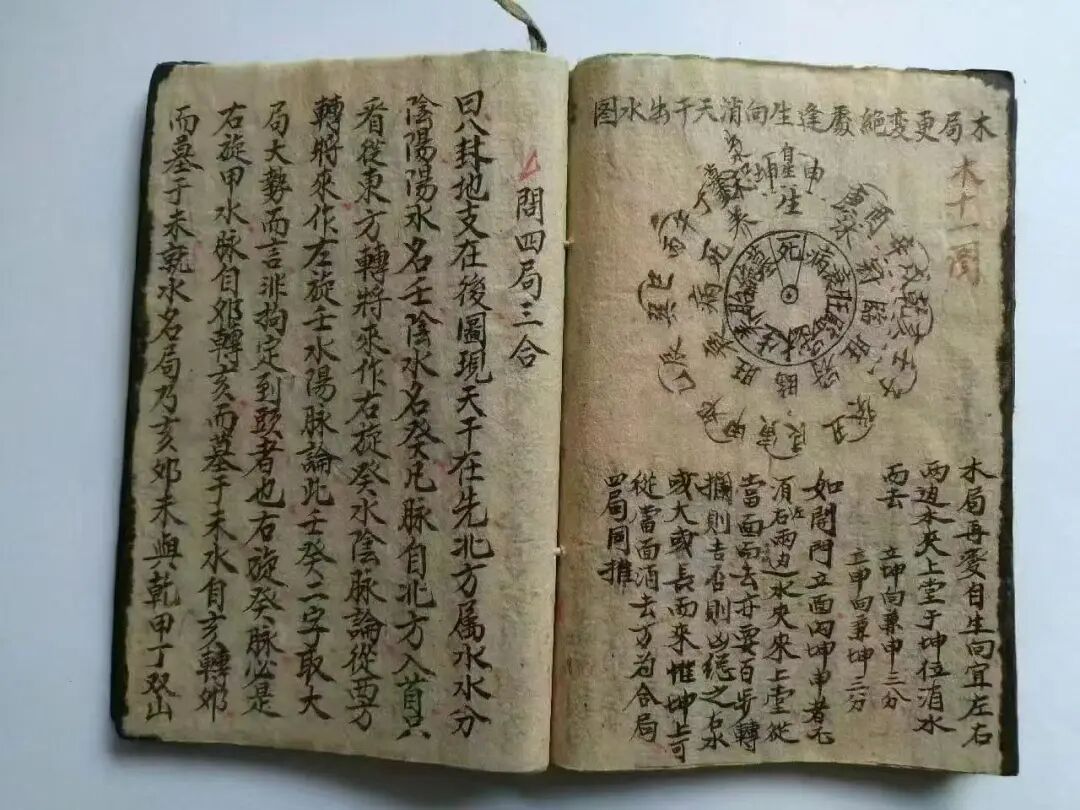 木局更變絕處逢生向消天干出水图
木十一
申
坤
生
死
病
衰
旺
臨
木局再变自生向宜左右
兩边水夾上堂于坤位消水
而去
立坤向兼申三分
立申向兼坤二分
如閤門立面向坤申者不
須左右兩边水夾來上堂從
當面而去亦要百步轉
攔則吉否則凶總之右水
或大或長而來惟坤上可
從當面洒去方為合局
四局同推
問四局三合
曰八封地支在後圖現天干在先北方属水水分
陰陽陽水名壬陰水名癸凡脉自北方入首只
看從東方轉將來作右旋癸水陰脉論從西方
轉將來作左旋壬水陽脉論此壬癸二字取大
局大勢而言非拘定到頭者也右旋癸脉必是
右旋甲水脉自邜轉亥而墓于未水自亥轉邜
而墓于未就水名局乃亥邜未與乾甲丁山